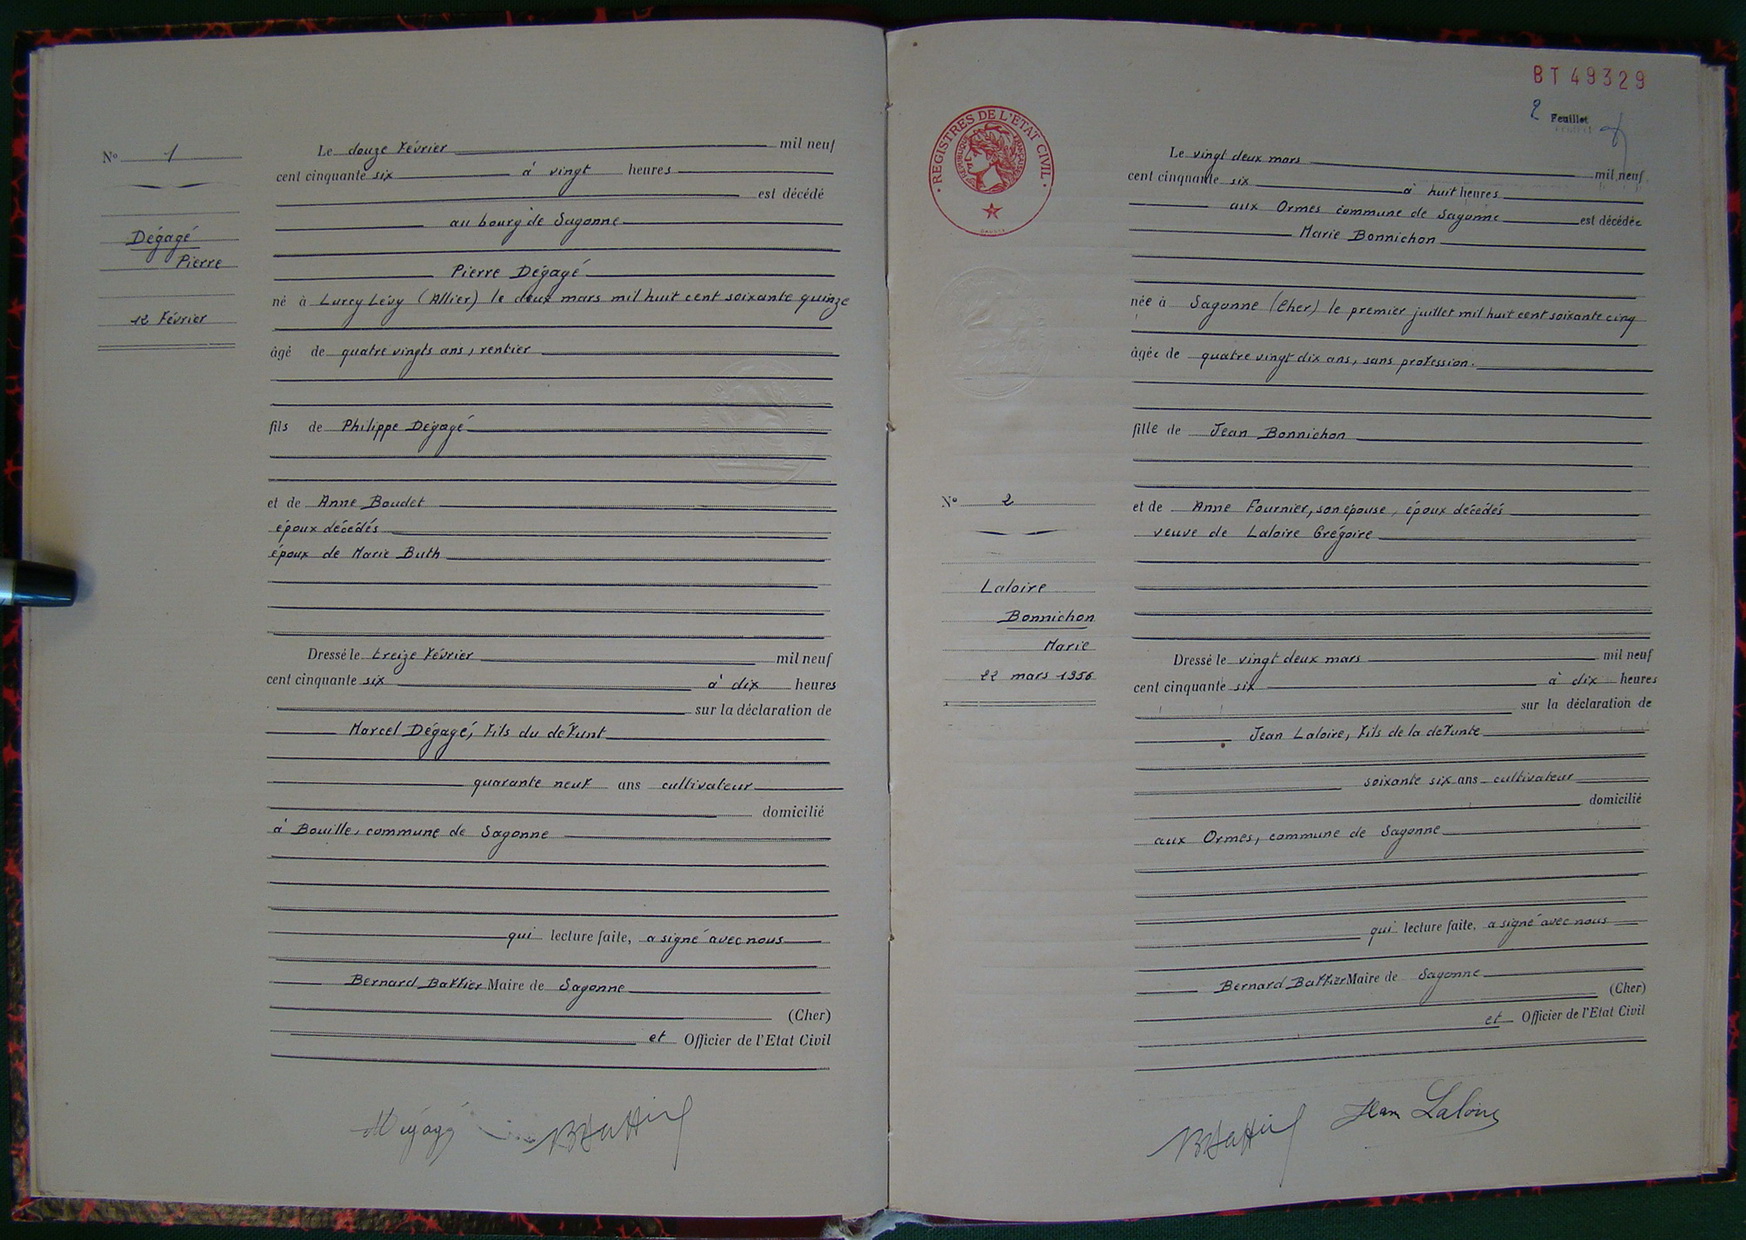 Nº 1
Dégagé
Pierre
12 Février
Le douze Février mil neuf
cent cinquante six à vingt heures
est décédé
au bourg de Sagonne
Pierre Dégagé
né à Lurcy Lévy (Allier) le deux mars mil huit cent soixante quinze
âgé de quatre vingts ans, rentier
fils de Philippe Dégagé
et de Anne Boudet
époux décédés
époux de Marie Buth
Dressé le treize Février mil neuf
cent cinquante six à dix heures
sur la déclaration de
Marcel Dégagé, Fils du défunt
quarante neuf ans cultivateur
domicilié
à Bouille, commune de Sagonne
qui lecture faite, a signé avec nous
Bernard Maire de Sagonne
(Cher)
et Officier de l'Etat Civil
BT 49329
2 Feuillet
REGISTRES DE L'ETAT CIVIL
Nº 2
Laloire
Bonnichon
Marie
22 mars 1956
Le vingt deux mars mil neuf
cent cinquante six à huit heures
aux Ormes commune de Sagonne est décédée
Marie Bonnichon
née à Sagonne (Cher) le premier juillet mil huit cent soixante cinq
âgée de quatre vingt dix ans, sans profession.
fille de Jean Bonnichon
et de Anne Fournier, son épouse, époux décédés
veuve de Laloire Grégoire
Dressé le vingt deux mars mil neuf
cent cinquante six à dix heures
sur la déclaration de
Jean Laloire, Fils de la défunte
soixante six ans cultivateur
domicilié
aux Ormes, commune de Sagonne
qui lecture faite, a signé avec nous
Bernard Maire de Sagonne
(Cher)
et Officier de l'Etat Civil
Jean Laloire